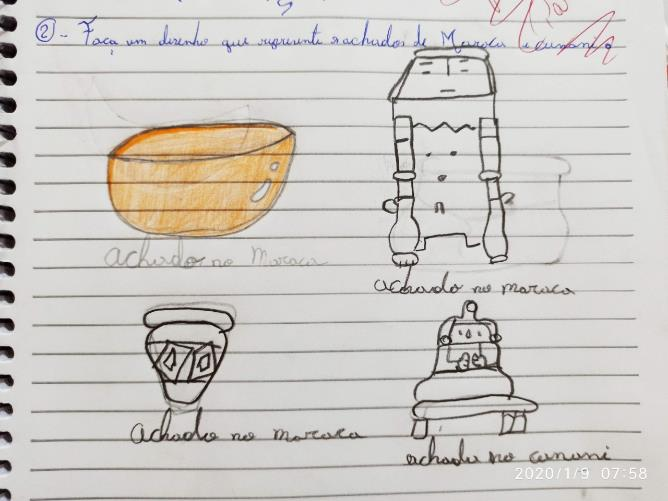 2 - Faça um desenho que represente achados de Maraca e cunani.
achados no Maraca
achado no maraca
achado no maraca
achado no cunani
2020/1/9 07:58